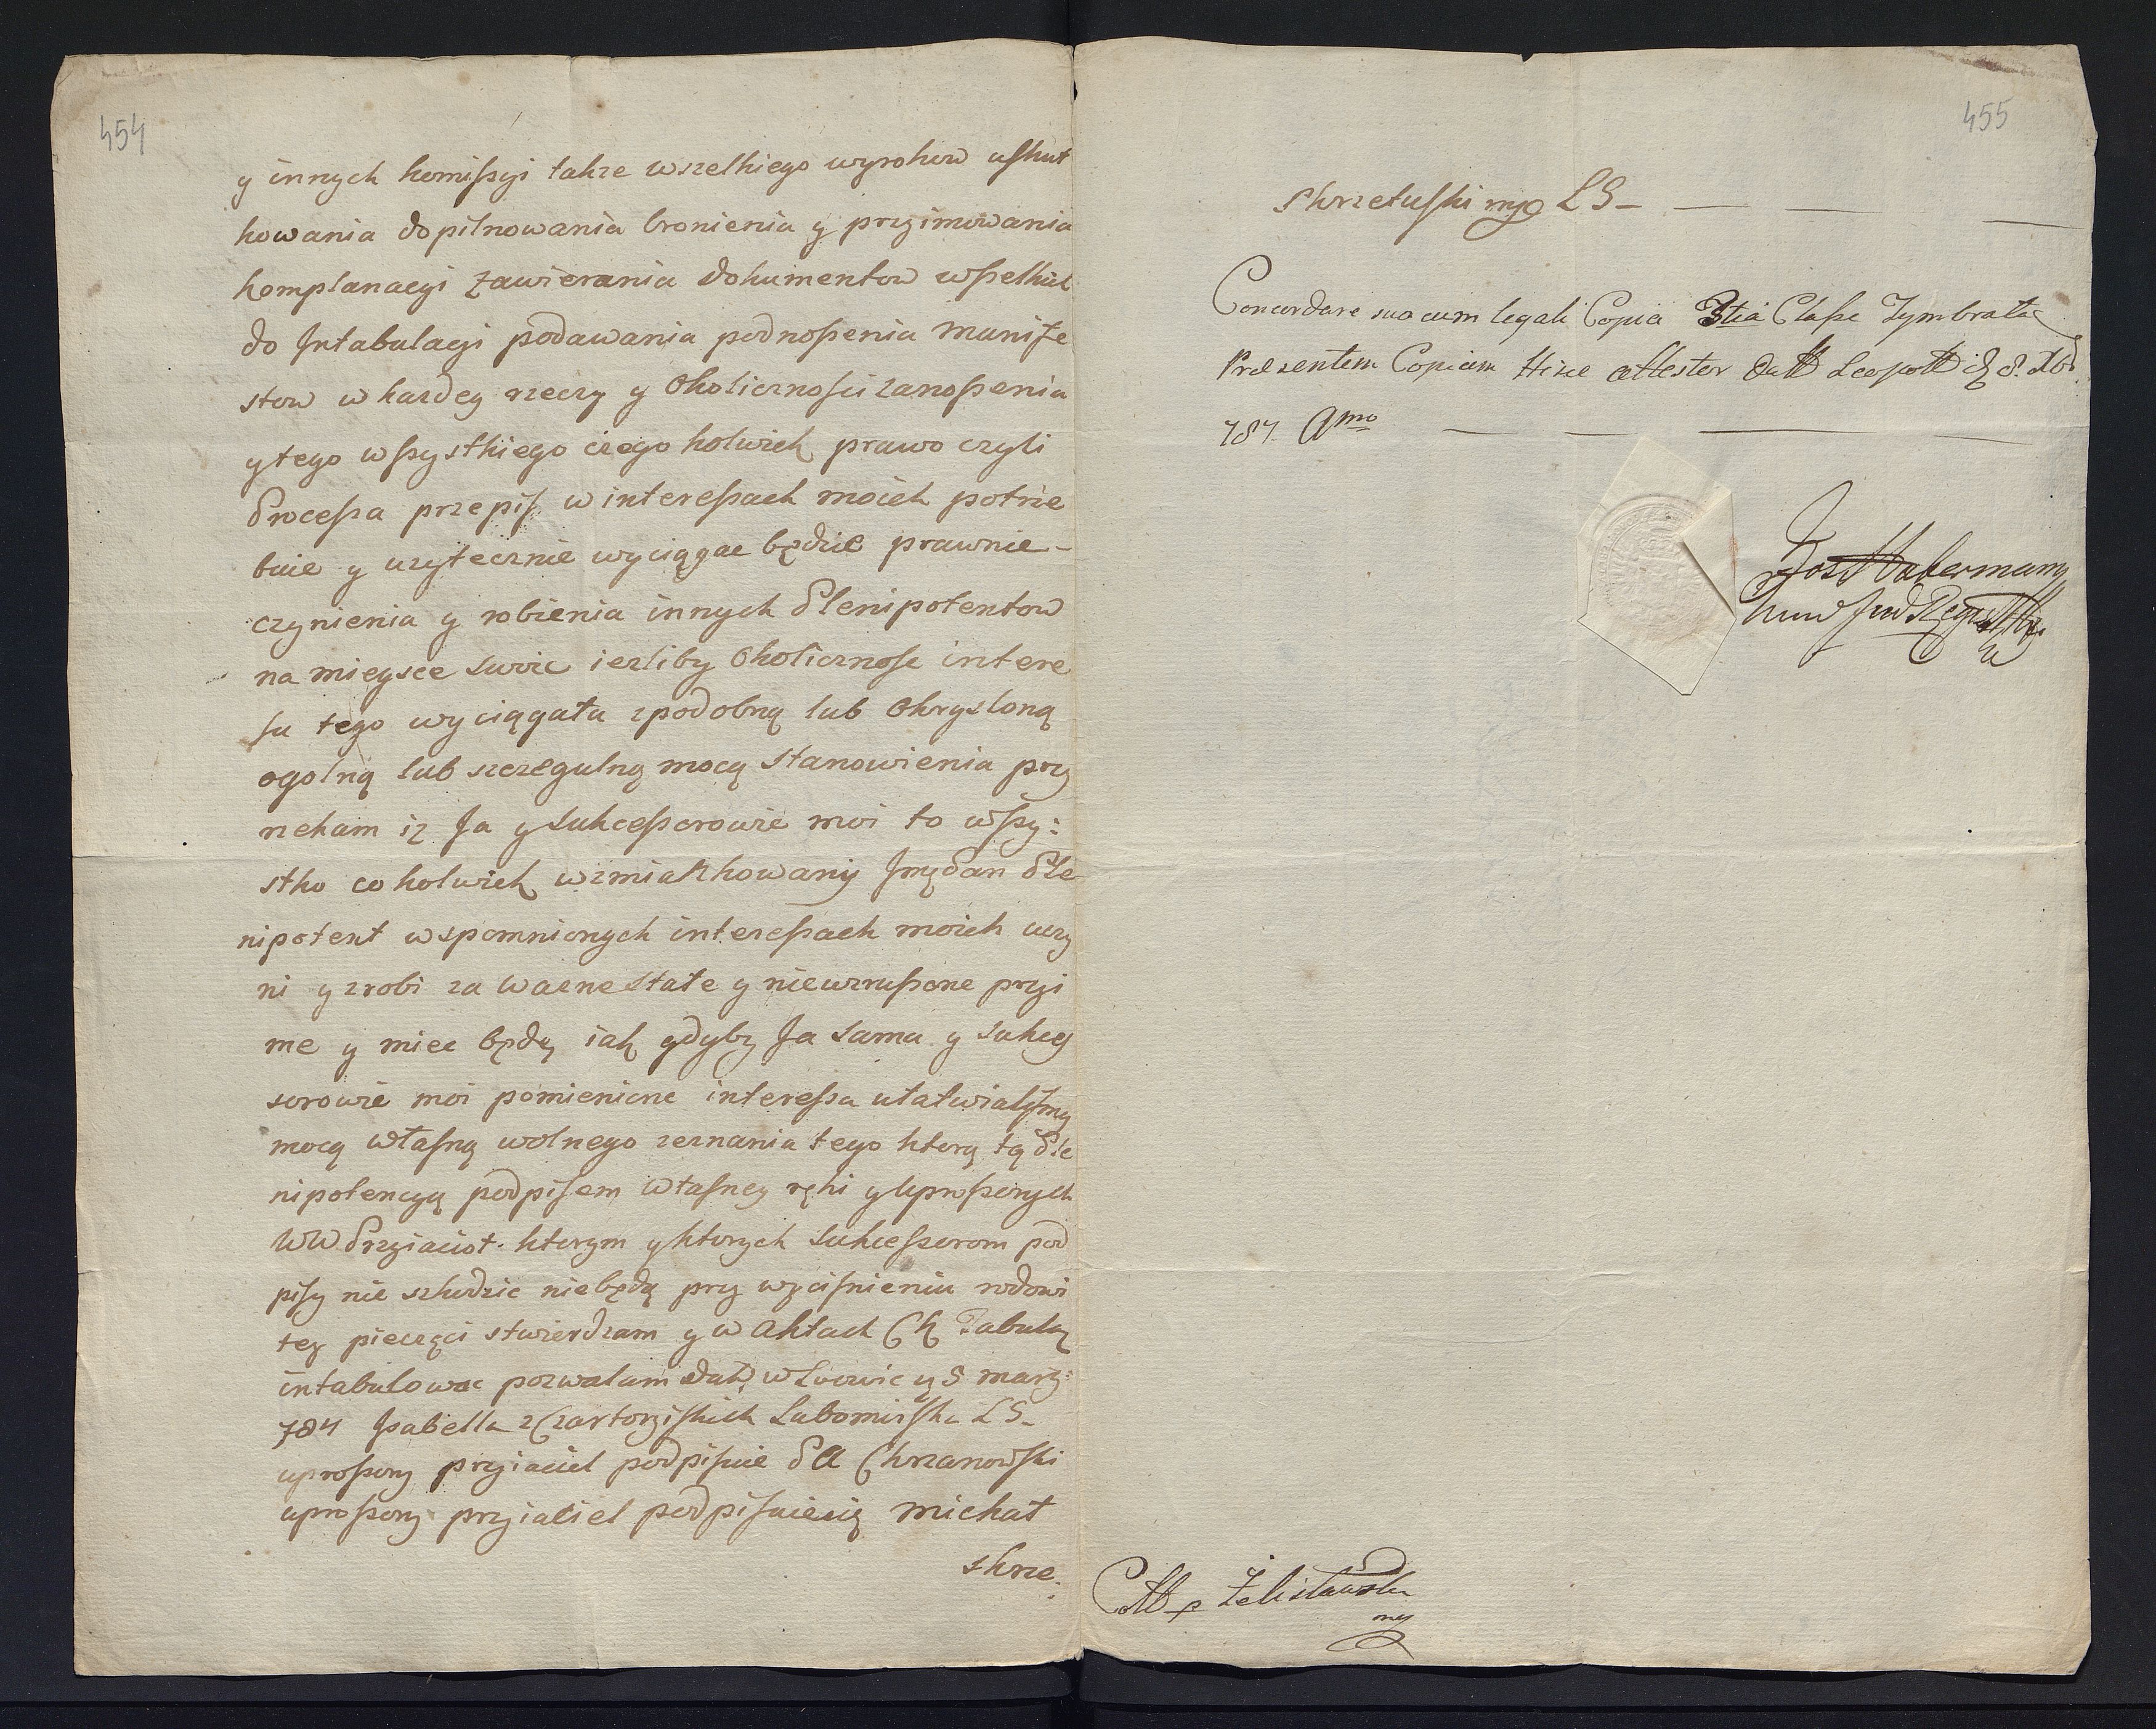 454
y innych komissyi takze wszelkiego wyrokow uskut
kowania dopilnowania bronienia y przyimowania
komplanacyi zawierania dokumentow wszelkich
do Jntabulacyi podawania podnoszenia Manife
stow w kazdey rzeczy y Okolicznosci zanoszenia
y tego wszystkiego czego kolwiek prawo czyli
Processa przepis w interessach moich potrze
bnie y uzytecznie wyciągac będzie prawnie-
czynienia y robienia innych Plenipotentow
na mieysce swoie iezliby Okolicznosc intere
su tego wyciągała z podobną lub Okrysloną
ogolną lub szczegulną mocą stanowienia przy
rzekam iz Ja y Sukcessorowie moi to wszy:
stko co kolwiek wzmiankowany Jmę Pan Ple
nipotent wspomnionych interessach moich uczy
ni y zrobi za wazne stałe y niewzruszone przyi
me y miec będę iak gdyby Ja sama y sukces
sorowie moi pomienione interessa ułatwialysmy
mocą własną wolnego zeznania tego ktorą tą Ple
nipotencyą podpisem własney ręki y Uproszonych
WW Przyiacioł. ktorym y ktorych Sukcessorom pod
pisy nie szkodzic niebędą przy wycisnieniu rodowi
tey pieczęci stwierdzam y w Aktach CK Tabulę
intabulowac pozwalam Datt w Lwowie 8 marz:
784 Jzabella z Czartoryiskich Lubomirska LS-
uproszony przyiaciel podpisuie PA Chrzanowski
uproszony przyiaciel podpisuiesię Michał
skrze:
455
Skrzetuski mp LS-
Concordare suo cum legali Copia 3tia Classe Tymbrata
Praesentem Copiam Hisce attestor Datt Leopoli 8. Xbr
787. Amo
Jos Habermann
Coll p Zelislawski
mp